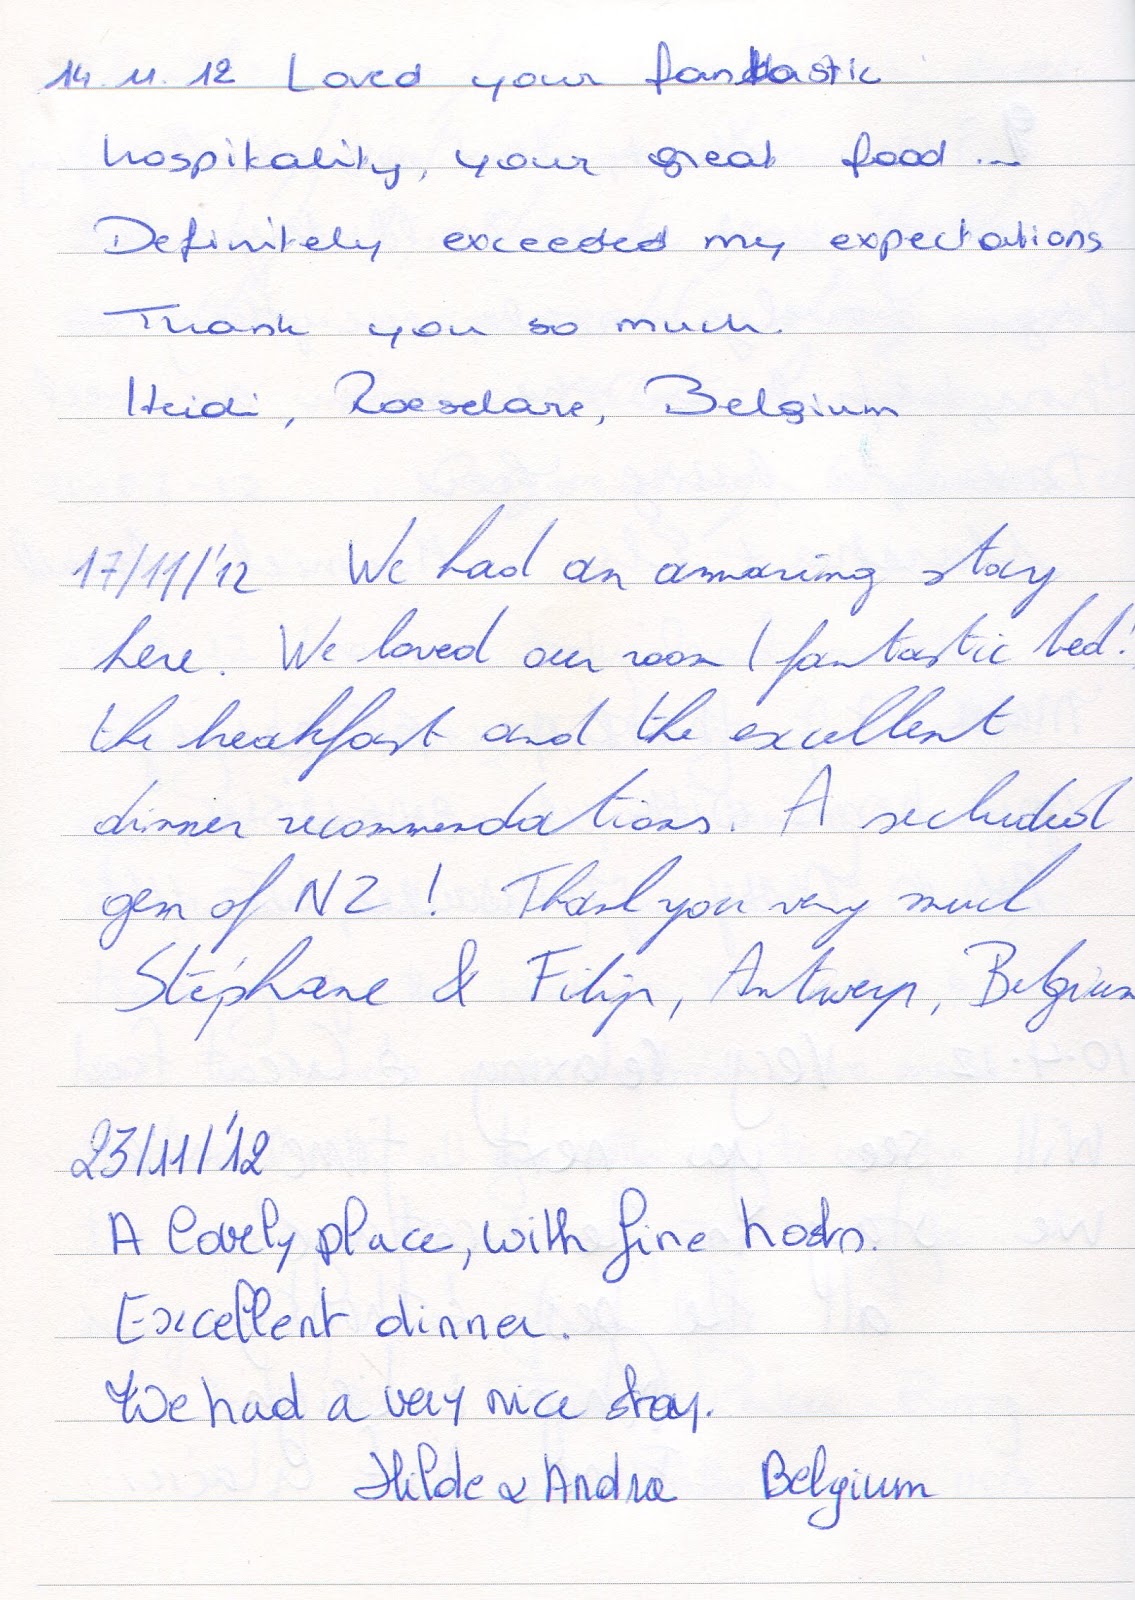 14.11.12 Loved your fantastic
hospitality, your great food ...
Definitely exceeded my expectations
Thank you so much.
Heidi, Roeselare, Belgium
17/11/'12 We had an ammazing stay
here. We loved our room (fantastic bed!)
the breakfast and the excellent
dinner recommendations. A secluded
gem of NZ! Thank you very much
Stéphane & Filip, Antwerp, Belgium
23/11/'12
A lovely place, with fine hosts.
Excellent dinner.
We had a very nice stay.
Hilde & Andre Belgium